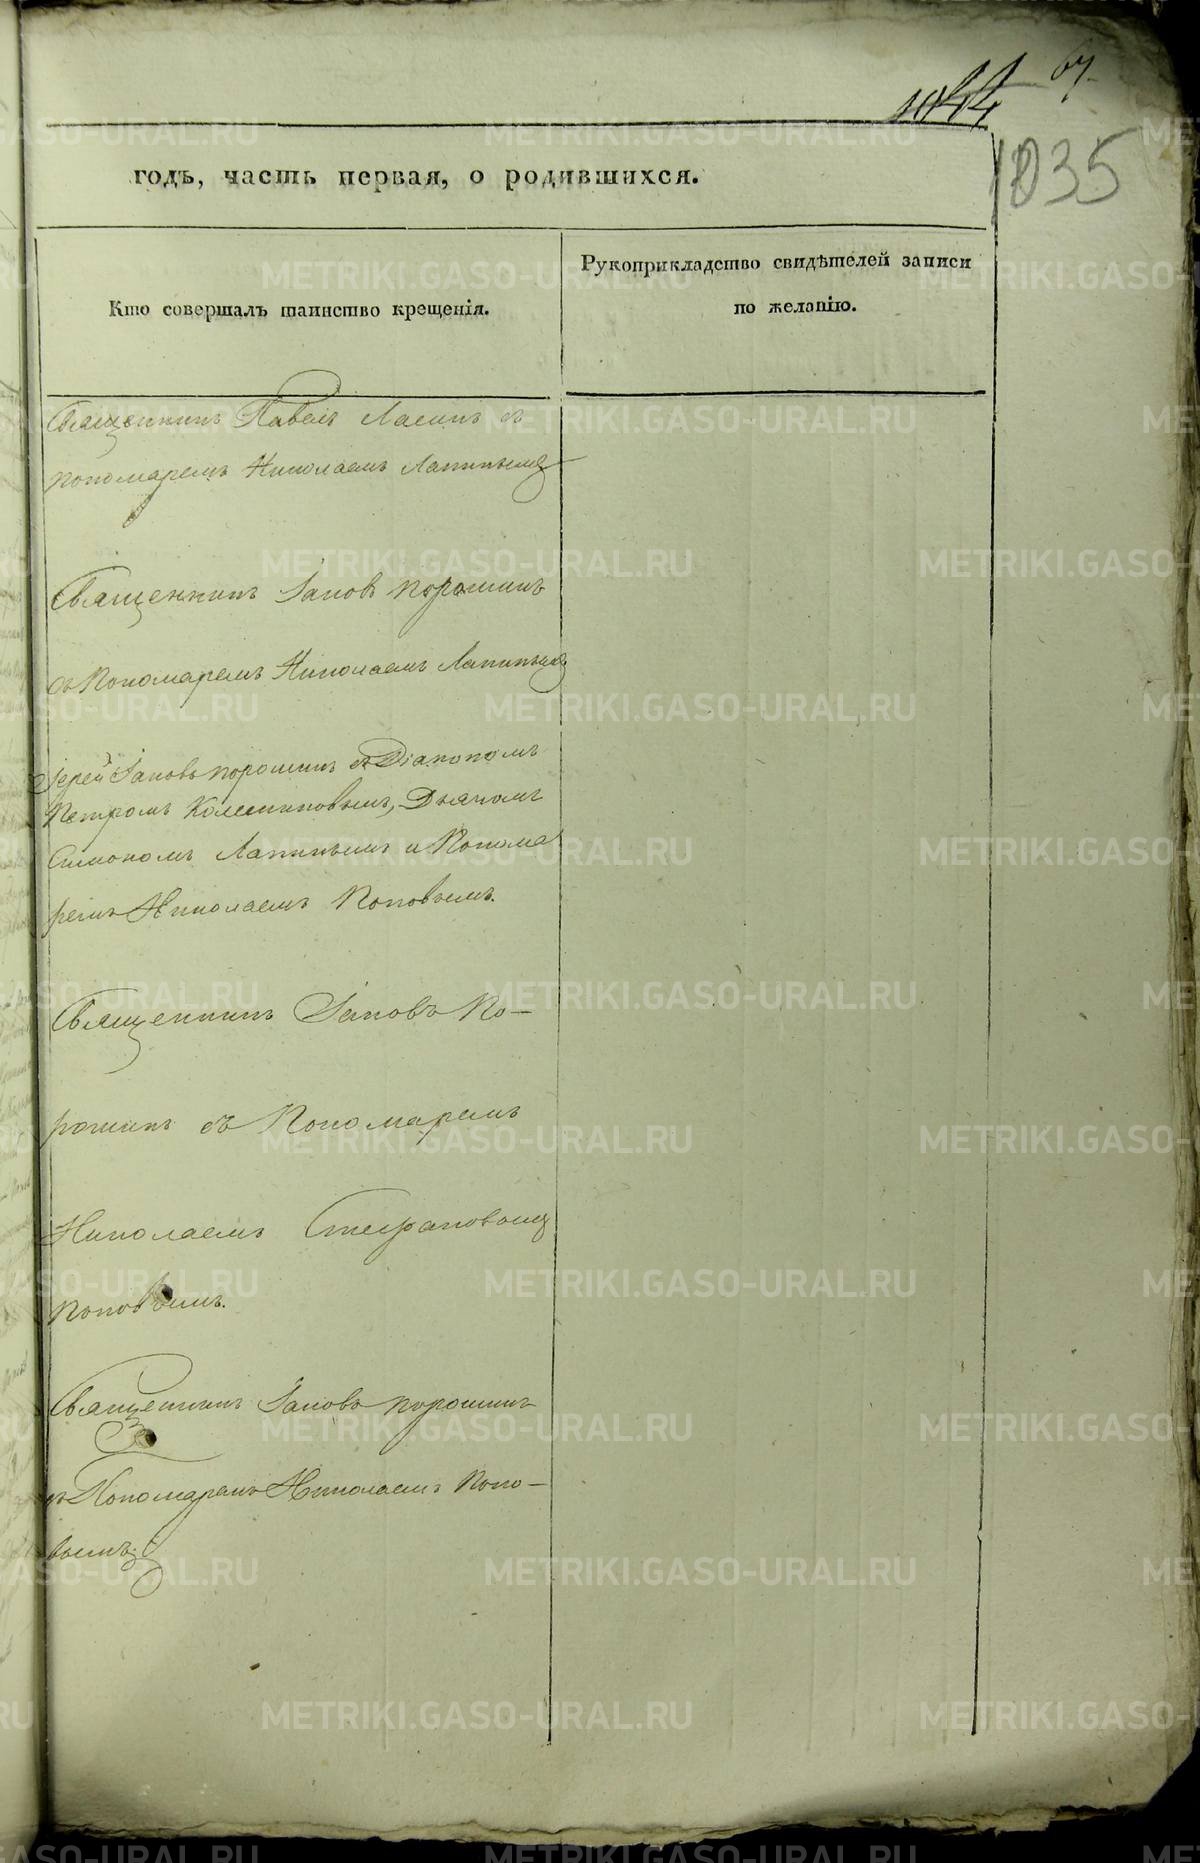 67.
1044
1035
годъ, часть первая, о родившихся.
Кто совершалъ таинство крещенія.
Рукоприкладство свидѣтелей записи
по желанію.
Священникъ Павелъ съ
пономаремъ Николаемъ Лапинымъ
Священникъ Іаковъ Порошинъ
съ Пономаремъ Николаемъ Лапинымъ
Іерей Іаковъ Порошинъ съ Діакономъ
Петромъ Колесниковымъ, Дьячкомъ
Симономъ Лапинымъ и Понома
ремъ Николаемъ Поповымъ.
Священникъ Іаковъ По-
рошинъ съ Пономаремъ
Николаемъ Стефановымъ
Поповымъ.
Священникъ Іаковъ Порошинъ
съ Пономаремъ Николаемъ Попо-
вымъ.
METRIKI.GASO-URAL.RU